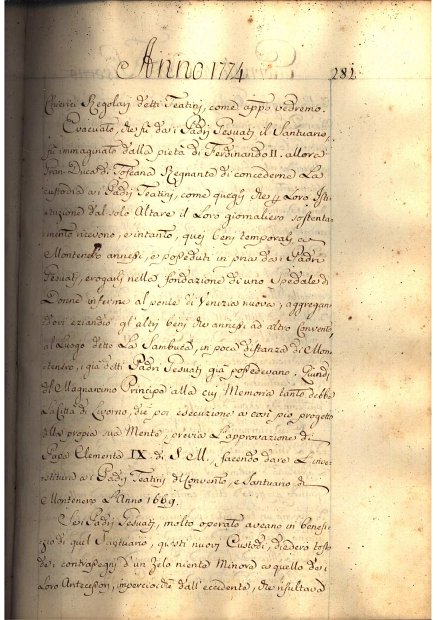 Anno 1774
282
Chierici Regolari detti Teatini, come appo vedremo.
Evacuato, che fù da i Padri Gesuati il Santuario,
fù immaginato dalla pietà di Ferdinando II. allora
Gran-Duca di Toscana Regnante di concederne La
custodia a i Padri Teatini, come quegli che p Loro Isti-
tuzione dal solo Altare il Loro giornaliero sostenta-
mento ricevono, e intanto, quei beni temporali a
Montenero annessi, e posseduti in pria da i Padri
Gesuati, erogarli nella fondazione di uno Spedale di
Donne inferme al ponte di Venezia nuova, aggregan-
dovi eziandio gl'altri beni che annessi ad altro Convento
al Luogo detto La Sambuca, in poca distanza di Mon-
tenero, i già detti Padri Gesuati già possedevano. Quindi
il Magnanimo Principe alla cui Memoria tanto debbe
La Città di Livorno, die poi esecuzione a così pio progetto
alla propria sua Mente, previa L'approvazione di
Papa Clemente IX. di S. M., facendo dare L'inve-
stitura a i Padri Teatini di Convento, e Santuario di
Montenero L'Anno 1669.
Se i Padri Gesuati, molto operato aveano in benefi-
zio di quel Santuario, questi nuovi Custodi, diedero tosto
de i contrasegni d'un zelo niente Minore a quello de i
Loro Antecessori, imperciocchè dall'eccedente, che risultava